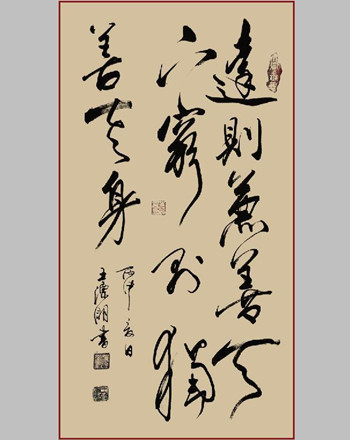 達則兼善天
下窮則獨
善其身
丙申夏日
王朋書